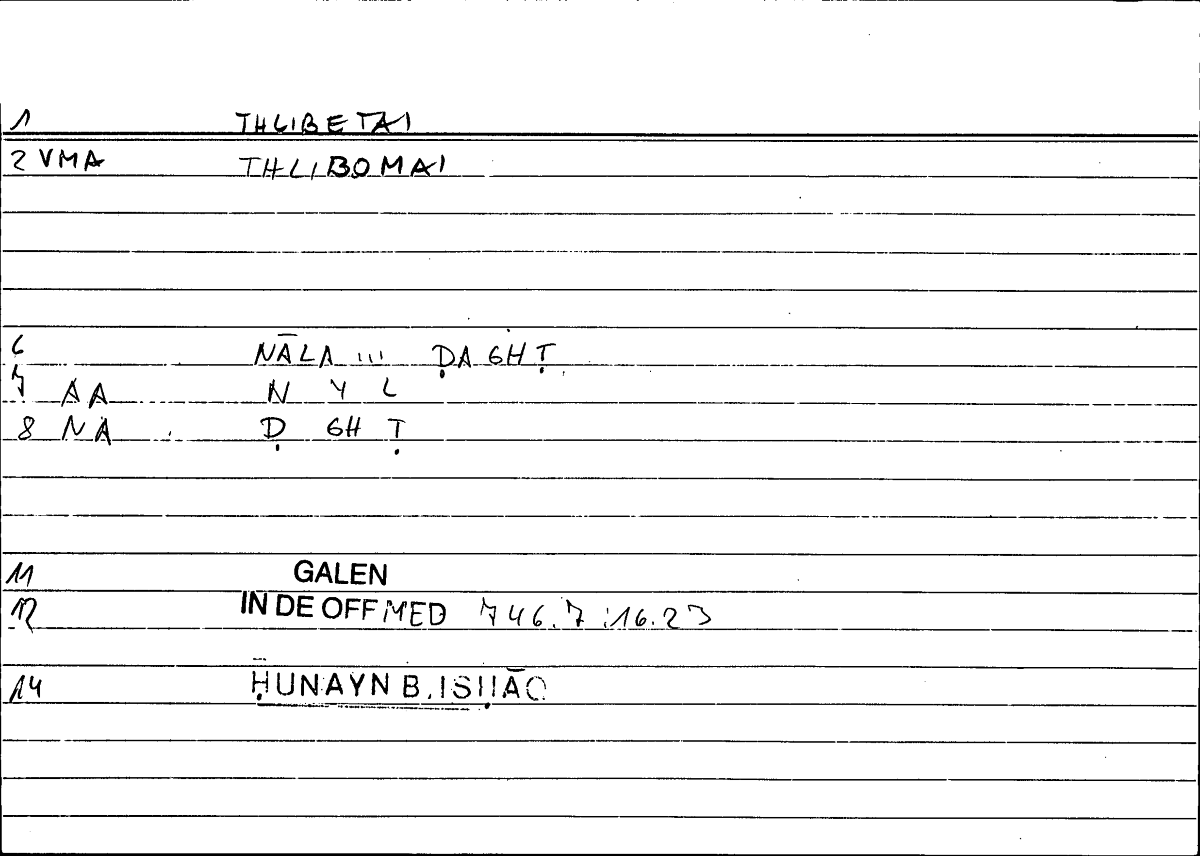 1 THLIBETAI
2 VMA THLIBOMAI
6 NĀLA ... ḌAGHṬ
7 AA N Y L
8 NA Ḍ GH Ṭ
11 GALEN
12 IN DE OFF MED 746.7 :16.23
14 ḤUNAYN B. ISḤĀQ